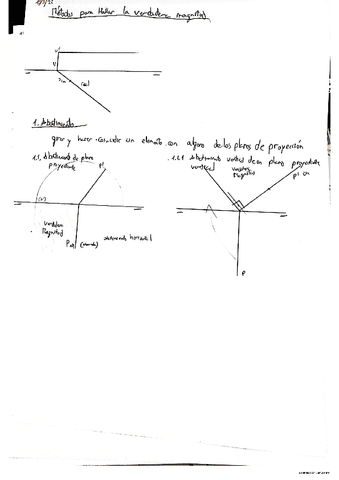 Métodos para Hallar la verdadera magnitud
V'
V
1. Abatimiento
girar y hacer coincidir un elemento con alguno de los planos de proyección
1.1. Abatimiento de plano
proyectante
P'
verdadera
Magnitud
abatimiento horizontal
1.2.1 Abatimiento vertical de un plano proyectante
vertical
verdadera
Magnitud
P'
P